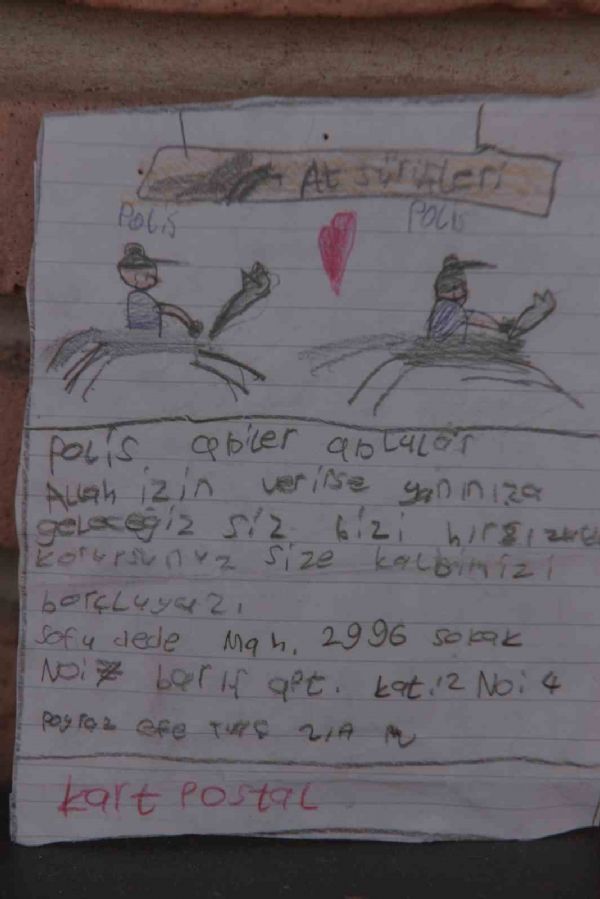 At sürükleri
Polis Polis
Polis abiler ablalar
Allah izin verirse yanınıza
geleceğiz siz bizi
korursunuz size kalbimizi
borçluyuz.
Sofu dede Mah. 2996 sokak
No: 7 barış apt. kat:2 No:4
poyraz efe
kart Postal